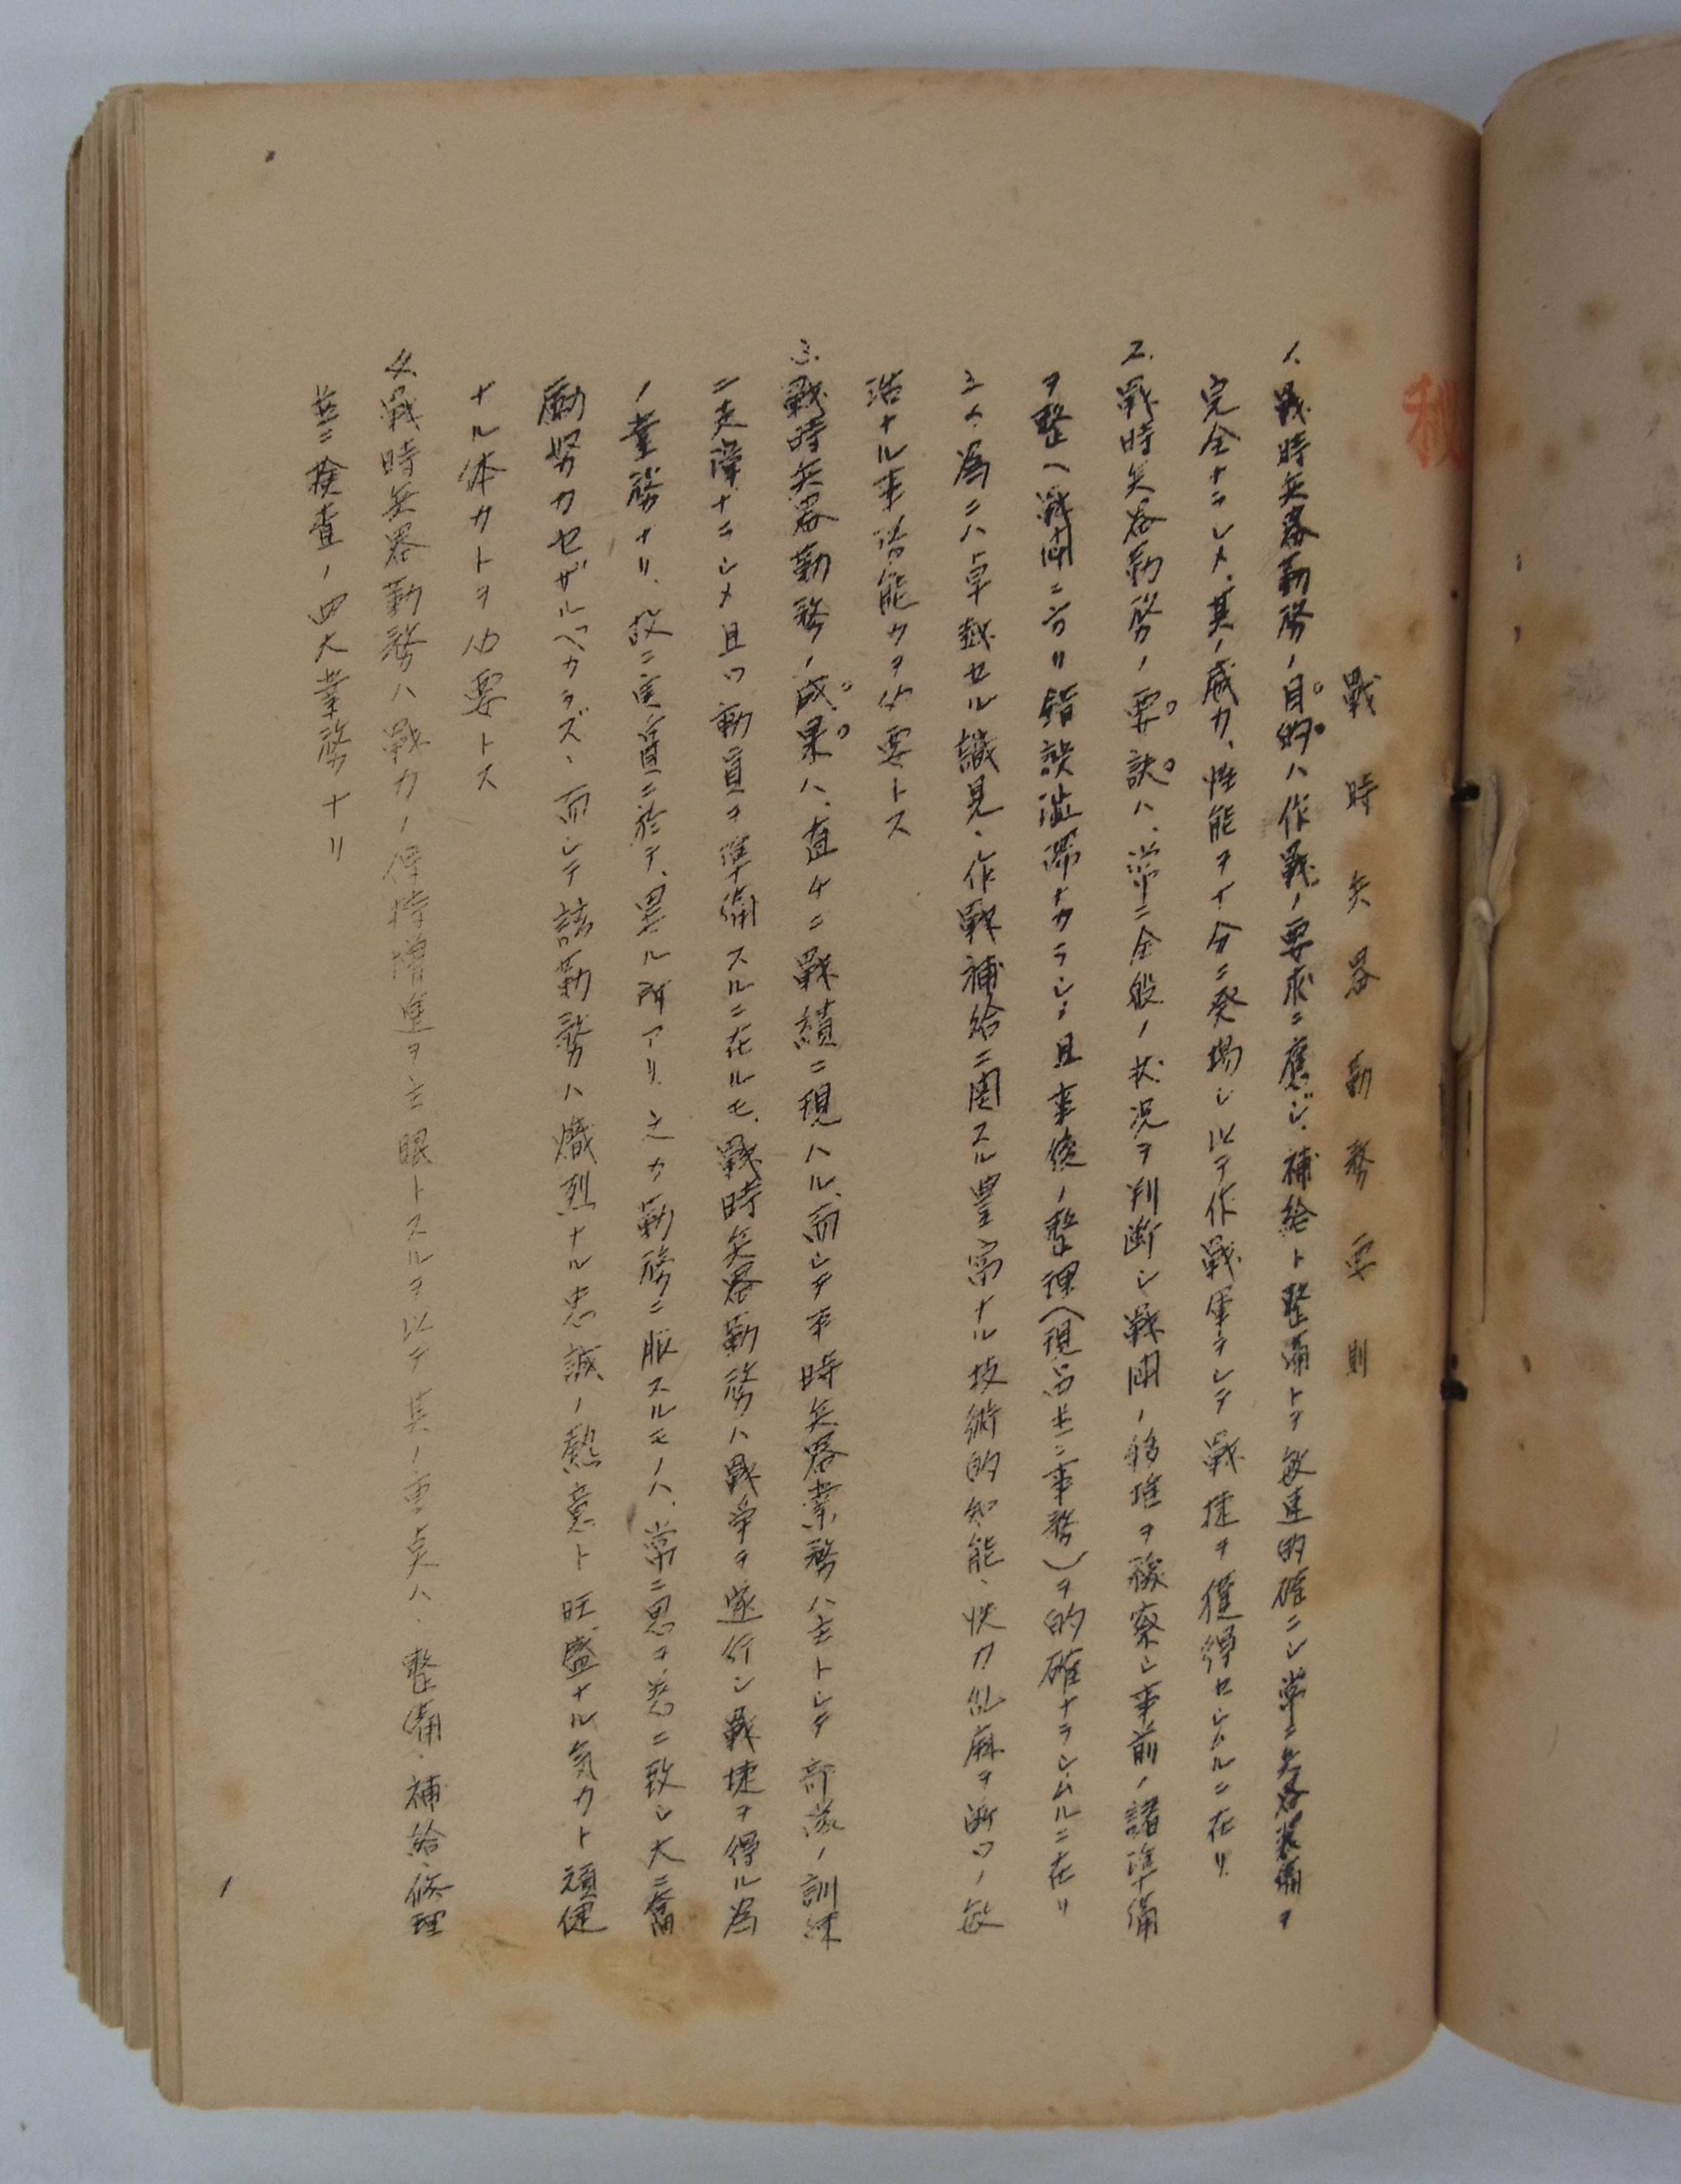 秘
戰時兵器勤務要則
1. 戰時兵器勤務ノ目的ハ作戰ノ要求ニ應ジ、補給ト整備トヲ敏速的確ニシ常ニ兵器装備ヲ
完全ナラシメ、其ノ威力、性能ヲ十分ニ発揚シ以テ作戰軍ヲシテ戰捷ヲ獲得セシムルニ在リ
2. 戰時兵器勤務ノ要訣ハ、常ニ全般ノ状況ヲ判断シ戰闘ノ推移ヲ察シ事前ノ諸準備
ヲ整ヘ戰闘ニ方リ錯誤渋滞ナカラシメ、且事後ノ整理(現品並ニ事務)ヲ的確ナラシムルニ在リ
之カ為ニハ卓越セル識見、作戰補給ニ関スル豊富ナル技術的知能、快刀乱麻ヲ断ツノ敏
活ナル事務能力ヲ必要トス
3. 戰時兵器勤務ノ成果ハ、直チニ戰績ニ現ハル、而シテ平時兵器業務ハ主トシテ部隊ノ訓練
ニ支障ナラシメ且ツ動員ヲ準備スルニ在ルモ、戰時兵器勤務ハ戰争ヲ遂行シ戰捷ヲ得ル為
ノ業務ナリ、故ニ実質ニ於テ、異ル所アリ之カ勤務ニ服スルモノハ、常ニ思ヲ茲ニ致シ大ニ奮
励努力セザルベカラズ、而シテ該勤務ハ熾烈ナル忠誠ノ熱意ト旺盛ナル気力ト頑健
ナル体力トヲ必要トス
4. 戰時兵器勤務ハ戰力ノ保持増進ヲ主眼トスルヲ以テ其ノ重点ハ、整備、補給、修理
並ニ検査ノ四大業務ナリ
1